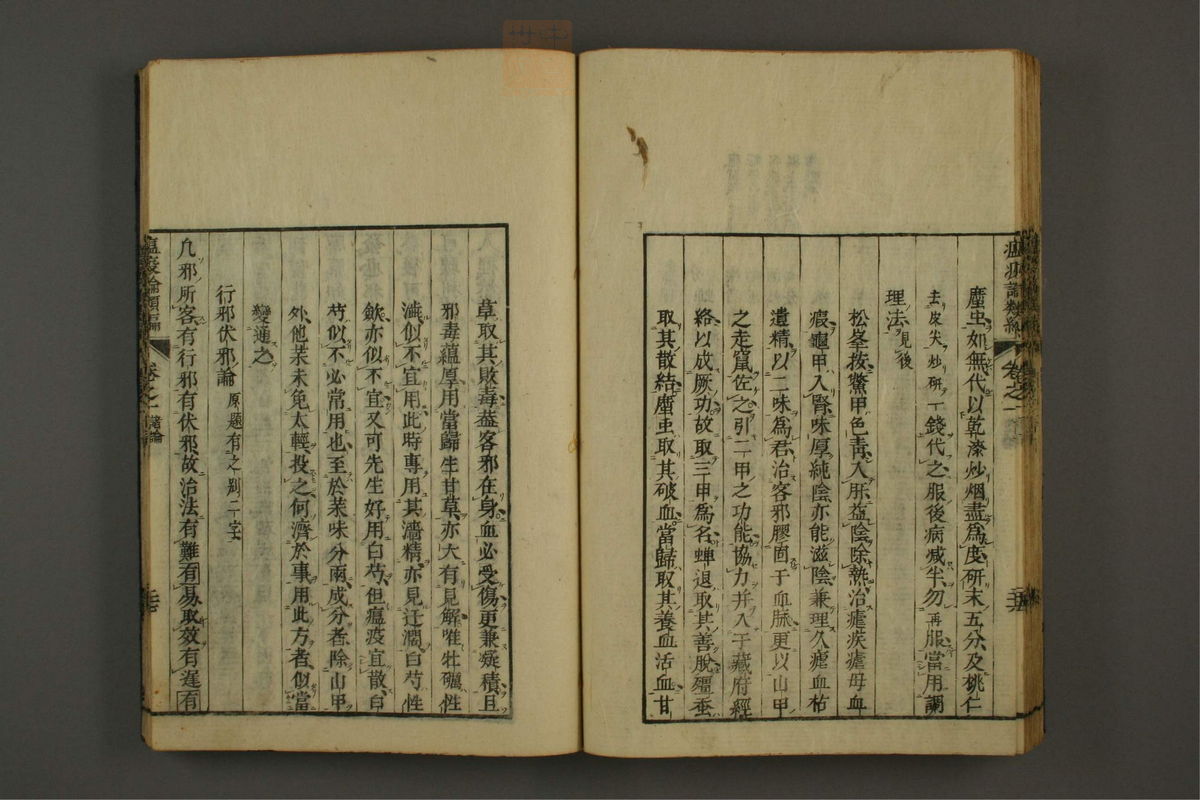 䗪虫如無代以乾漆炒烟盡為度研末五分及桃仁
去皮尖炒研一錢代之服後病减半勿再服當用調
理法見後
松峯按鱉甲色靑入肝益陰除熱治瘧疾瘧母血
瘕龜甲入腎味厚純陰亦能滋陰兼理久瘧血枯
遺精以二味爲君治客邪膠固于血脉更以山甲
之走竄佐之引二甲之功能協力并入于藏府經
絡以成厥功故取三甲爲名蟬退取其善脫殭蚕
取其散結䗪虫取其破血當歸取其養血活血甘
草取其敗毒葢客邪在身血必受傷更兼疑積且
邪毒蘊厚用當歸生甘草亦大有見解唯牡礪性
濇似不宜用此時專用其濇精亦見迂濶白芍性
歛亦似不宜又可先生好用白芍但瘟疫宜散白
芍似不必常用也至於菜味分兩成分者除山甲
外他菜未免太輕投之何濟於事用此方者似當
變通之
行邪伏邪論 原題有之别二字
凡邪所客有行邪有伏邪故治法有難有易取效有遲有
瘟疫論類編 卷之一 諸論